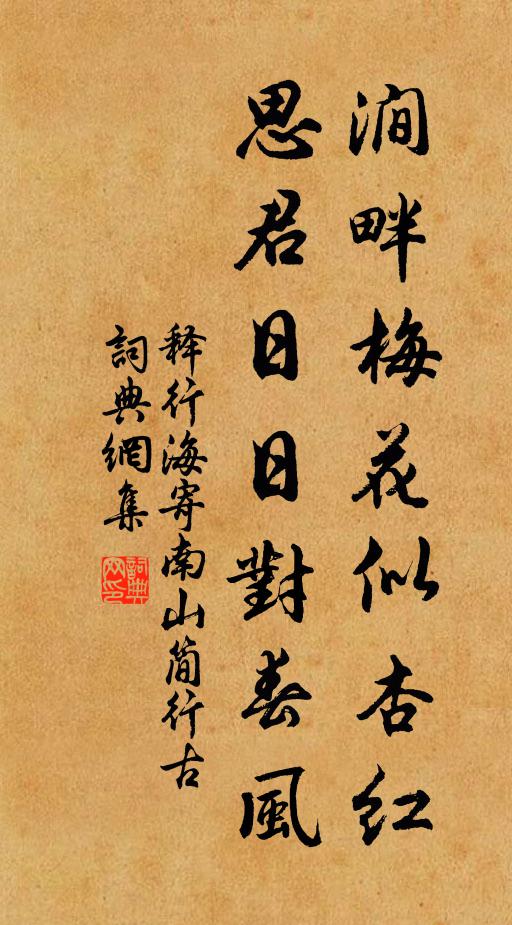 澗畔梅花似杏红
思君日日對春風
释行海寄南山簡行古
詞典網集
詞典网印